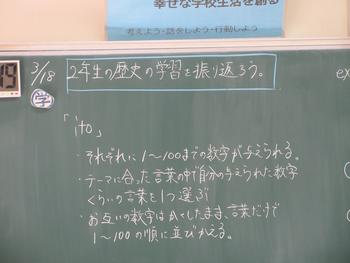 幸せな学校生活を創る
考えよう・話をしよう・行動しよう
19
3/18
2年生の歴史の学習を振り返ろう。
学
「ito」
・それぞれに1〜100までの数字が与えられる。
・テーマに合った言葉の中で自分の与えられた数字
くらいの言葉を1つ選ぶ
・お互いの数字はかくしたまま、言葉だけで
1〜100の順に並びかえる。
ex